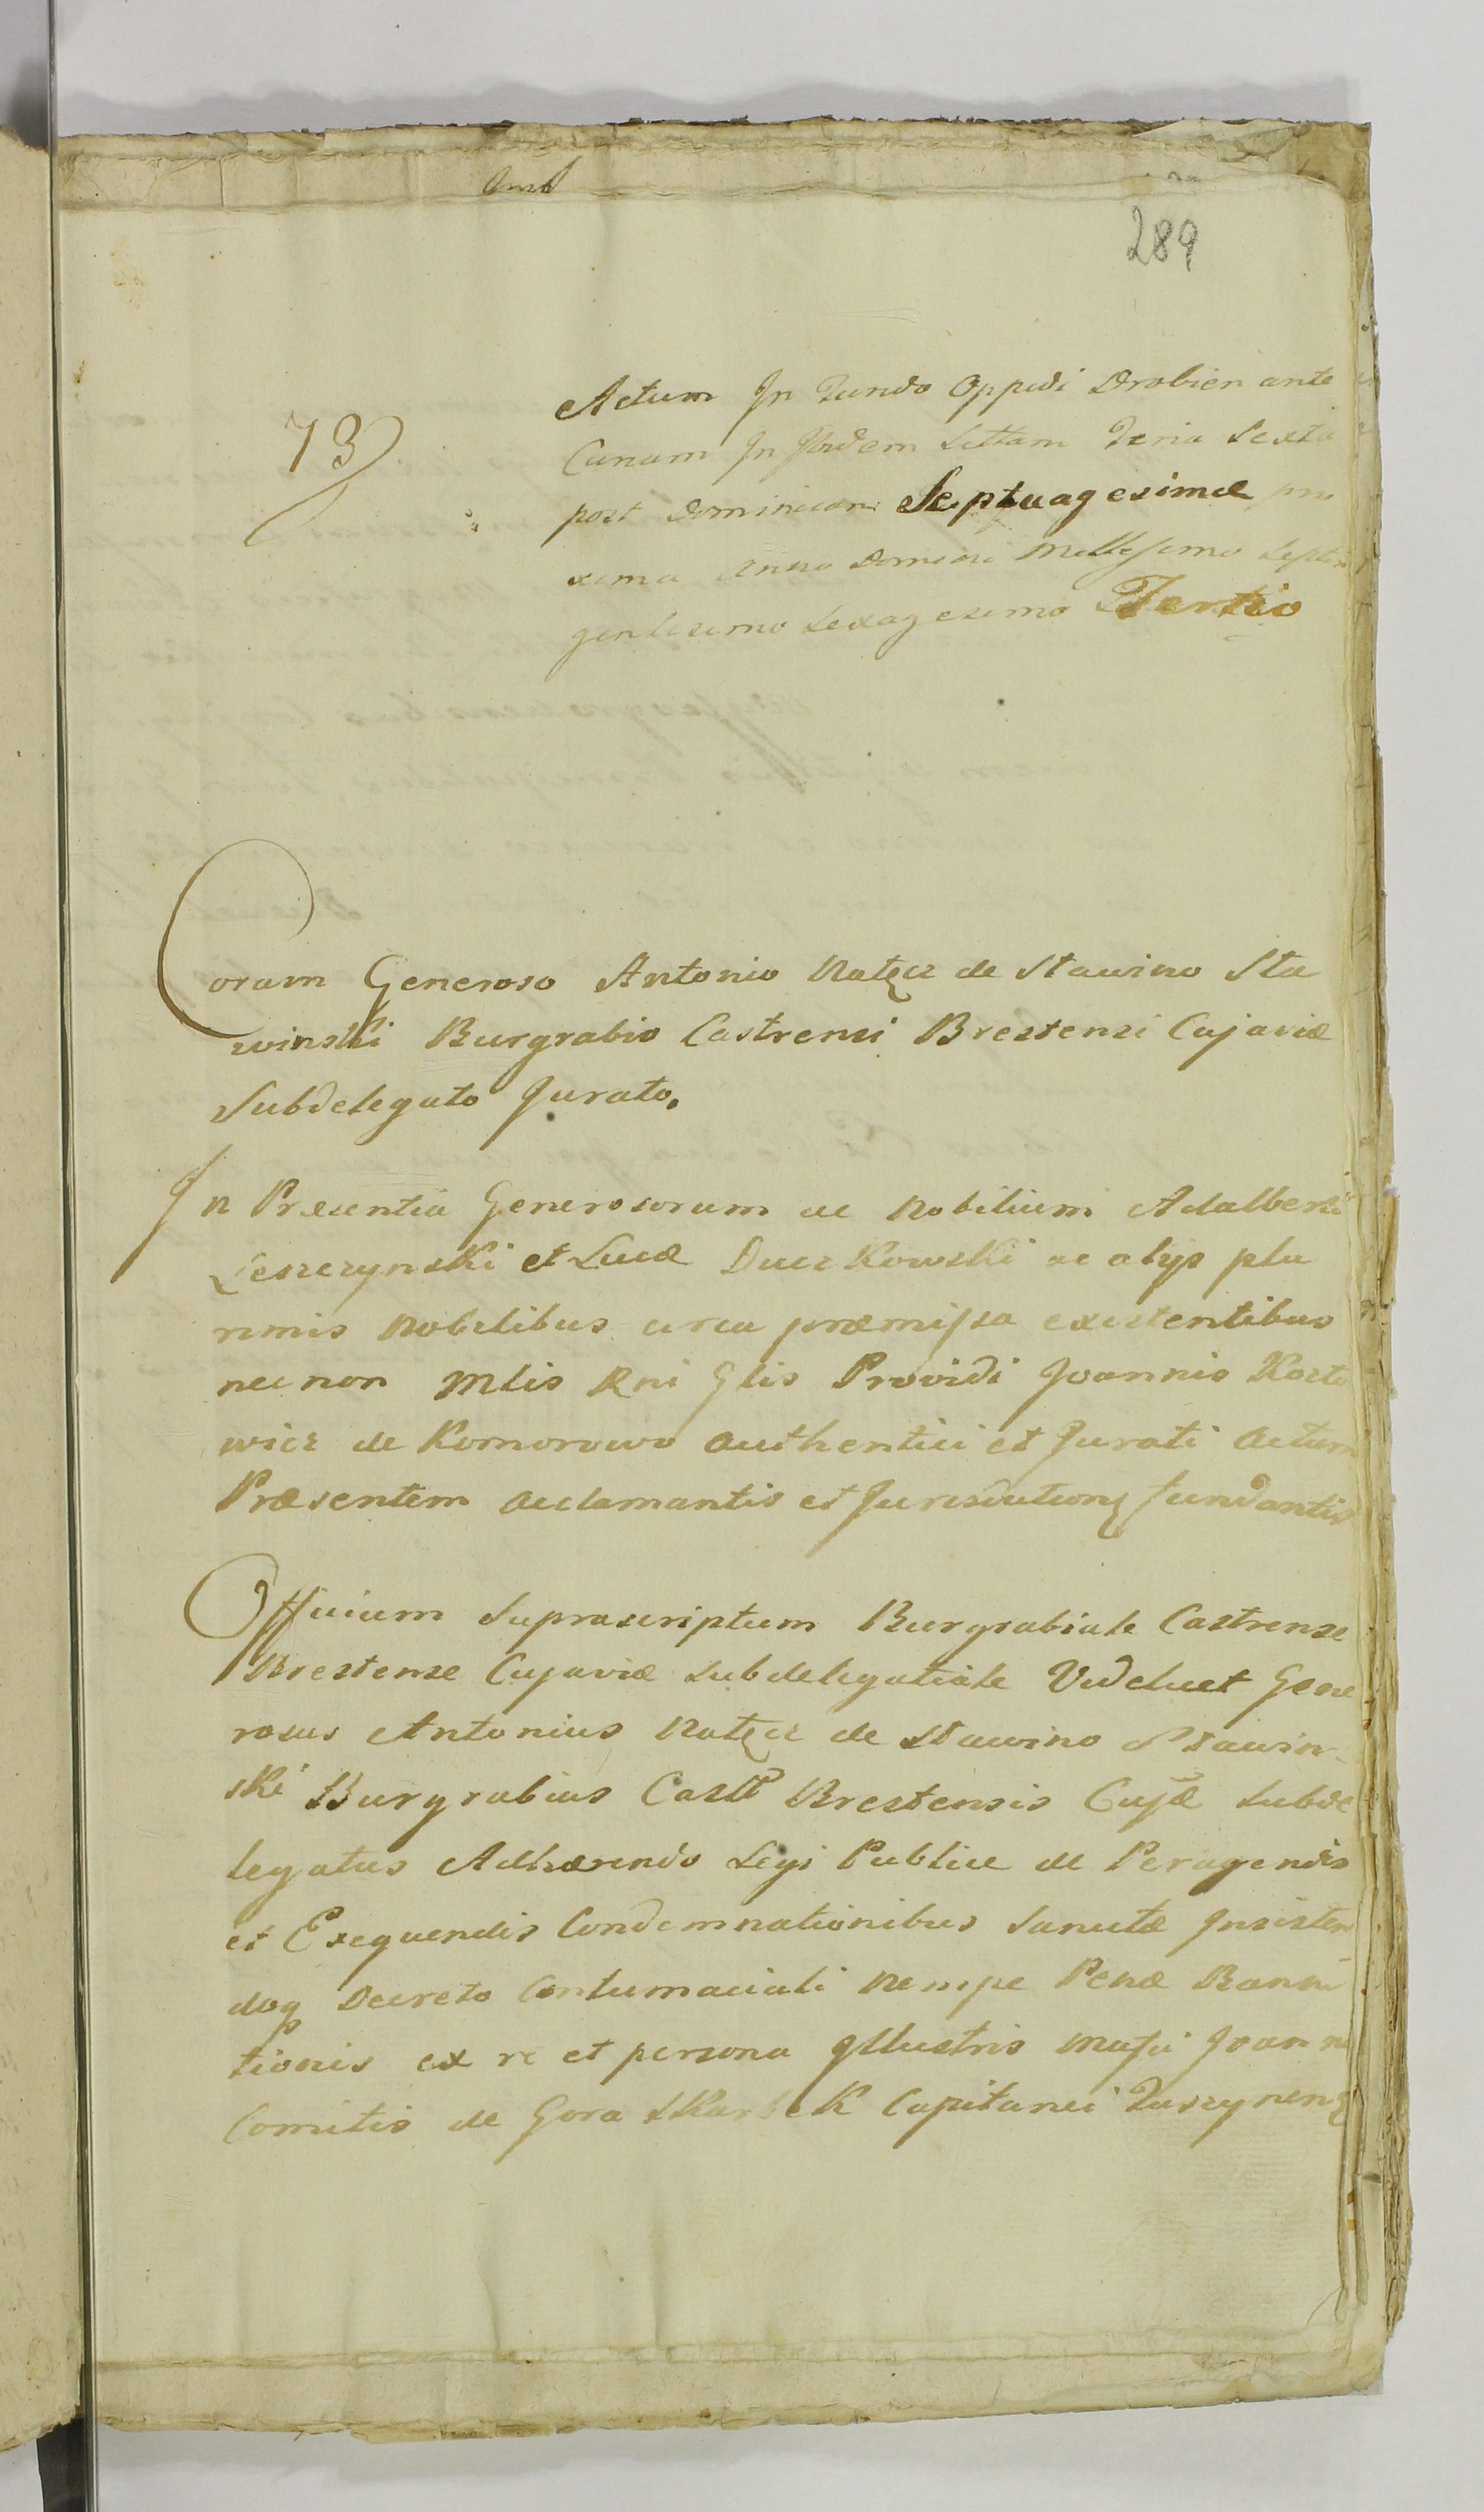 289
73
Actum In Fundo Oppidi Drobien ante
Curiam In Ibidem Sittam Feria Sexta
post Dominicam Septuagesimæ pro
xima Anno Domini Millesimo Septin
gentesimo Sexagesimo Tertio
Coram Generoso Antonio Natęcz de Stawino Sta
winski Burgrabio Castrensi Brestensi Cujaviæ
Subdelegato Jurato.
In Præsentia Generosorum ac Nobilium Adalberti
Leszczynski et Lucæ Duczkowski ac alijs plu
rimis Nobilibus circa præmissa existentibus
nec non Mlis Rni Glis Providi Joannis Kosto
wicz de Komorowo Authentici et Jurati Actum
Præsentem Acclamantis et Jurisdictionę fundantis
Officium Suprascriptum Burgrabiale Castrense
Brestense Cujaviæ Subdelegatiale Videlicet Gene
rosus Antonius Natęcz de Stawino Stawin-
ski Burgrabius Castr Brestensis Cujæ Subde
legatus Adhærendo Legi Publicæ de Peragendis
et Exequendis Condemnationibus Sancitæ Insisten
doq Decreto Contumaciali Nempe Penæ Banni
tionis ex re et persona Illustris Mafci Joannis
Comitis de Gora Skarbek Capitanei Tuszynens